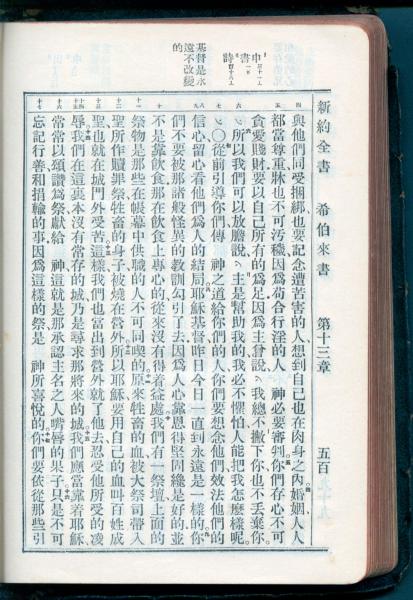 新約全書 希伯來書 第十三章 五百九十九
申三十一
書一
詩百十八
基督是永
遠不改變
的
四 五 六 七 八 九 十 十一 十二 十三 十四 十五 十六 十七
與他們同受捆綁也要記念遭苦害的人想到自己也在肉身之內婚姻人人
都當尊重牀也不可污穢因爲苟合行淫的人 神必要審判你們存心不可
貪愛錢財要以自己所有的爲足因爲主曾說我總不撇下你也不丟棄你
所以我們可以放膽說主是幫助我的我必不懼怕人能把我怎麼樣呢
〇從前引導你們傳 神之道給你們的人你們要想念他們效法他們的
信心留心看他們爲人的結局耶穌基督昨日今日一直到永遠是一樣的你
們不要被那諸般怪異的教訓勾引了去因爲人心靠恩得堅固纔是好的並
不是靠飲食那在飲食上專心的從來沒有得着益處我們有一祭壇上面的
祭物是那些在帳幕中供職的人不可同喫的原來牲畜的血被大祭司帶入
聖所作贖罪祭牲畜的身子被燒在營外所以耶穌要用自己的血叫百姓成
聖也就在城門外受苦這樣我們也當出到營外就了他去忍受他所受的凌
辱我們在這裏本沒有常存的城乃是尋求那將來的城我們應當靠着耶穌
常常以頌讚爲祭獻給 神這就是那承認主名之人嘴唇的果子只是不可
忘記行善和捐輸的事因爲這樣的祭是 神所喜悅的你們要依從那些引